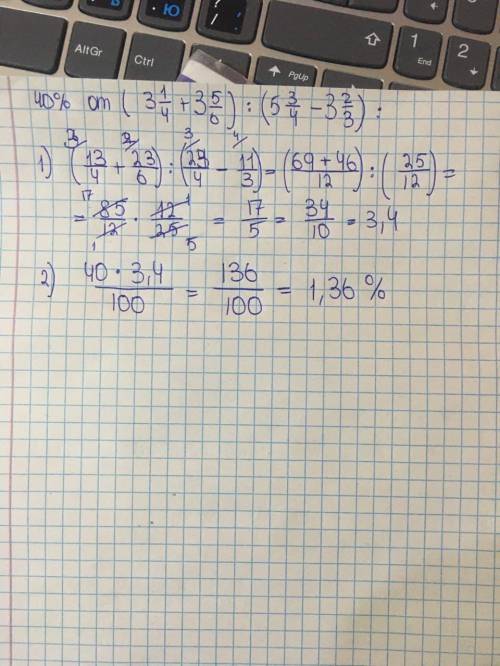 В Ю ? /
AltGr Ctrl ↑ PgUp ⇧ 1 End 2
40% от ( 3 1/4 + 3 5/6 ) : ( 5 3/4 − 3 2/3 ) :
1) ( 13/4 + 23/6 ) : ( 23/4 − 11/3 ) = ( 69 + 46 / 12 ) : ( 25/12 ) =
= 85/12 · 12/25 = 17/5 = 34/10 = 3,4
2) 40 · 3,4 / 100 = 136/100 = 1,36 %